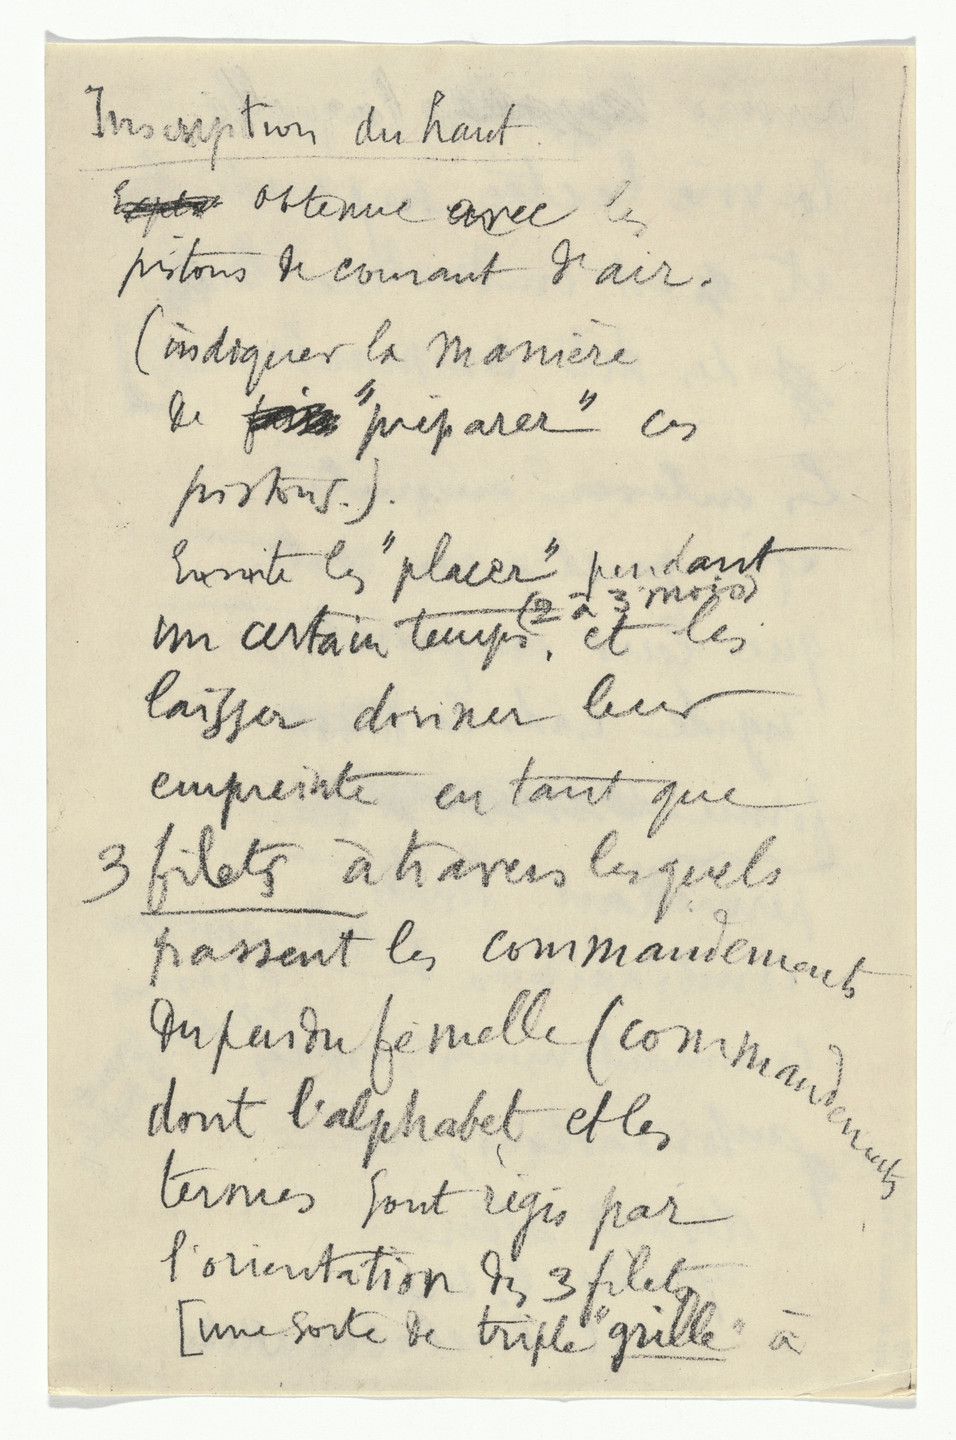 Inscription du haut
obtenue avec les
pistons de courant d'air.
(indiquer la manière
de "préparer" ces
pistons.).
Ensuite les "placer" pendant
un certain temps, (2 à 3 mois) et les
laisser donner leur
empreinte en tant que
3 filets à travers lesquels
passent les commandements
du pendu femelle (commandements
dont l'alphabet et les
termes sont régis par
l'orientation des 3 filets
[une sorte de triple "grille" à